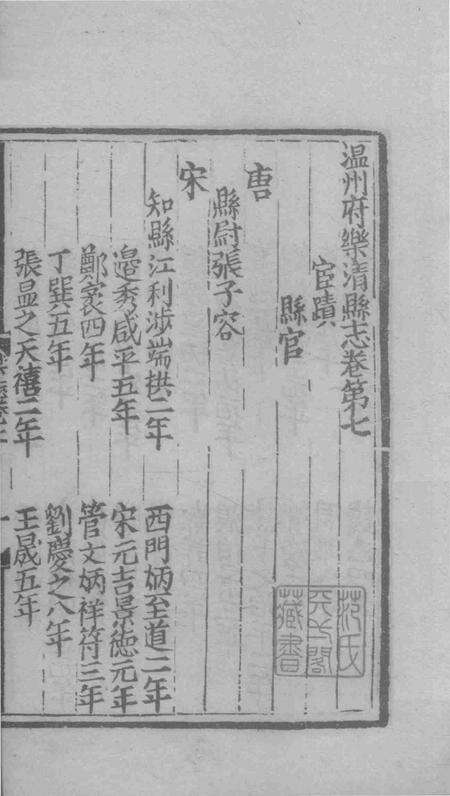 温州府樂清縣志卷第七
宦蹟
縣官
唐
縣尉張子容
宋
知縣江利涉端拱二年
西門炳至道二年
邉秀咸平五年
宋元吉景德元年
鄭宲四年
管文炳祥符三年
丁巽五年
劉慶之八年
張昷之天禧二年
王晟五年
范氏天一閣藏書